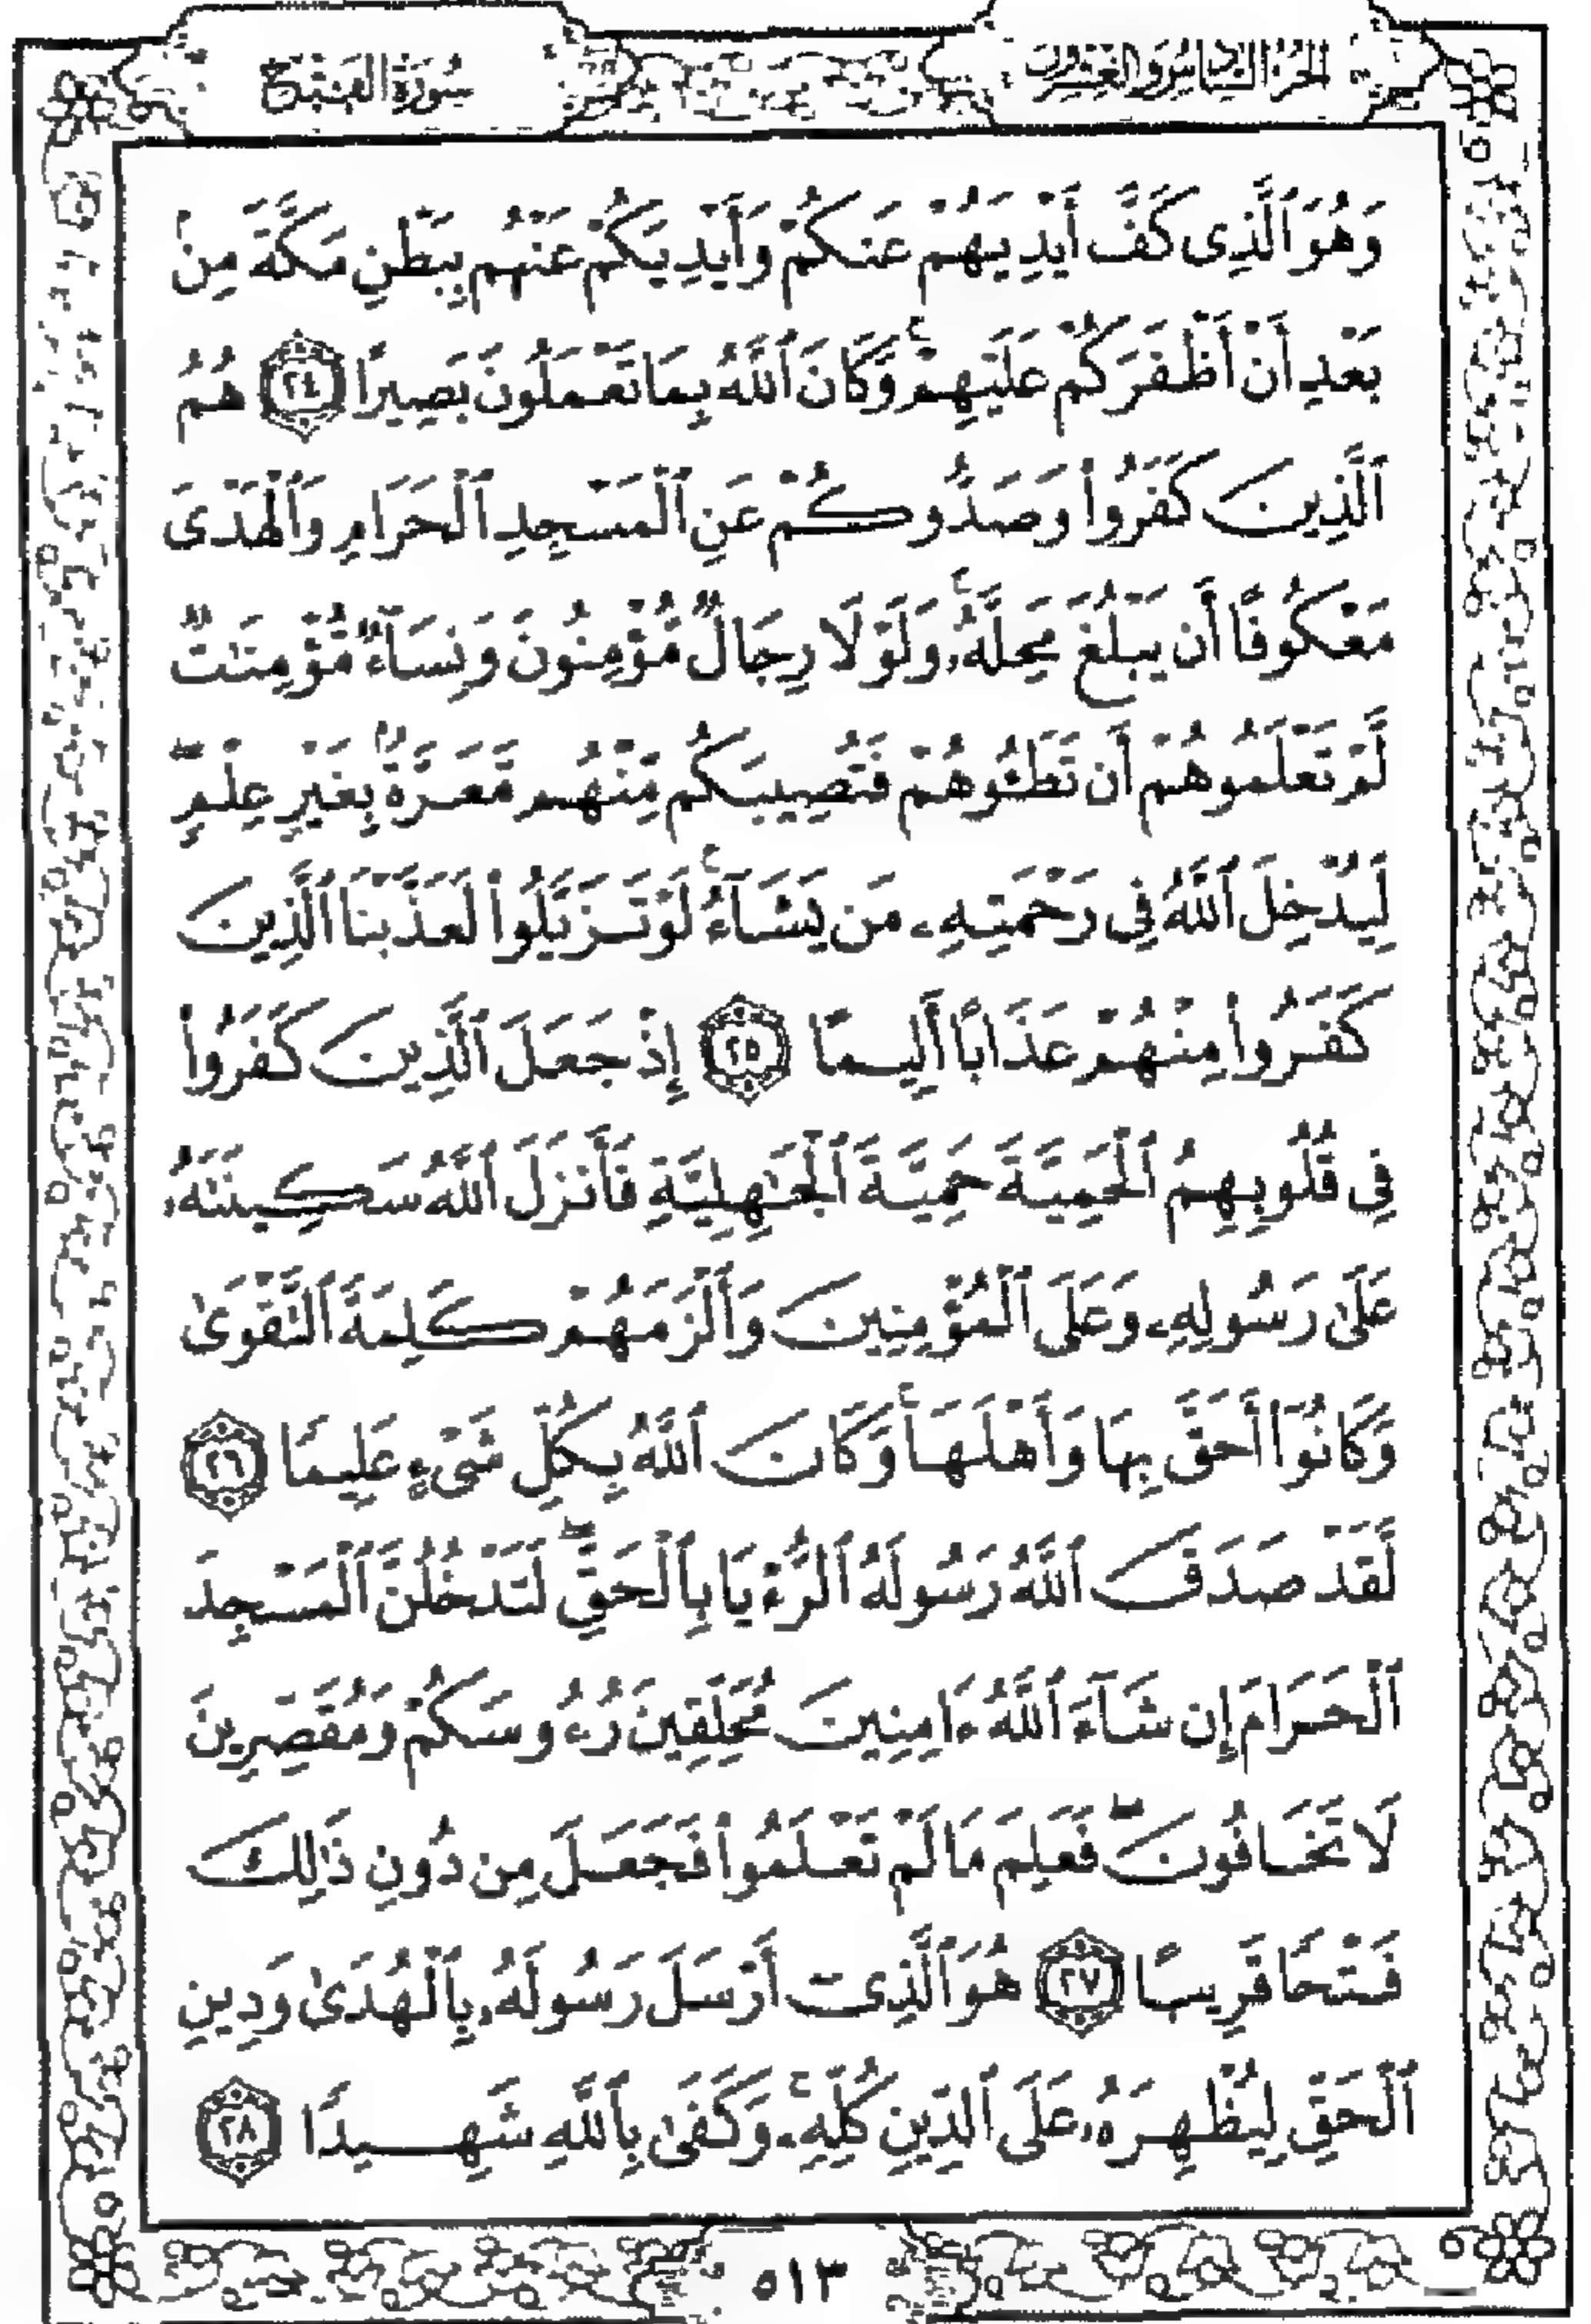 الجزء السادس والعشرون
سورة الفتح
وَهُوَ ٱلَّذِى كَفَّ أَيْدِيَهُمْ عَنكُمْ وَأَيْدِيَكُمْ عَنْهُم بِبَطْنِ مَكَّةَ مِنۢ
بَعْدِ أَنْ أَظْفَرَكُمْ عَلَيْهِمْ ۚ وَكَانَ ٱللَّهُ بِمَا تَعْمَلُونَ بَصِيرًا ۝٢٤ هُمُ
ٱلَّذِينَ كَفَرُوا۟ وَصَدُّوكُمْ عَنِ ٱلْمَسْجِدِ ٱلْحَرَامِ وَٱلْهَدْىَ
مَعْكُوفًا أَن يَبْلُغَ مَحِلَّهُۥ ۚ وَلَوْلَا رِجَالٌ مُّؤْمِنُونَ وَنِسَآءٌ مُّؤْمِنَـٰتٌ
لَّمْ تَعْلَمُوهُمْ أَن تَطَـُٔوهُمْ فَتُصِيبَكُم مِّنْهُم مَّعَرَّةٌۢ بِغَيْرِ عِلْمٍ ۖ
لِّيُدْخِلَ ٱللَّهُ فِى رَحْمَتِهِۦ مَن يَشَآءُ ۚ لَوْ تَزَيَّلُوا۟ لَعَذَّبْنَا ٱلَّذِينَ
كَفَرُوا۟ مِنْهُمْ عَذَابًا أَلِيمًا ۝٢٥ إِذْ جَعَلَ ٱلَّذِينَ كَفَرُوا۟
فِى قُلُوبِهِمُ ٱلْحَمِيَّةَ حَمِيَّةَ ٱلْجَـٰهِلِيَّةِ فَأَنزَلَ ٱللَّهُ سَكِينَتَهُۥ
عَلَىٰ رَسُولِهِۦ وَعَلَى ٱلْمُؤْمِنِينَ وَأَلْزَمَهُمْ كَلِمَةَ ٱلتَّقْوَىٰ
وَكَانُوٓا۟ أَحَقَّ بِهَا وَأَهْلَهَا ۚ وَكَانَ ٱللَّهُ بِكُلِّ شَىْءٍ عَلِيمًا ۝٢٦
لَّقَدْ صَدَقَ ٱللَّهُ رَسُولَهُ ٱلرُّءْيَا بِٱلْحَقِّ ۖ لَتَدْخُلُنَّ ٱلْمَسْجِدَ
ٱلْحَرَامَ إِن شَآءَ ٱللَّهُ ءَامِنِينَ مُحَلِّقِينَ رُءُوسَكُمْ وَمُقَصِّرِينَ
لَا تَخَافُونَ ۖ فَعَلِمَ مَا لَمْ تَعْلَمُوا۟ فَجَعَلَ مِن دُونِ ذَٰلِكَ
فَتْحًا قَرِيبًا ۝٢٧ هُوَ ٱلَّذِىٓ أَرْسَلَ رَسُولَهُۥ بِٱلْهُدَىٰ وَدِينِ
ٱلْحَقِّ لِيُظْهِرَهُۥ عَلَى ٱلدِّينِ كُلِّهِۦ ۚ وَكَفَىٰ بِٱللَّهِ شَهِيدًا ۝٢٨
٥١٣